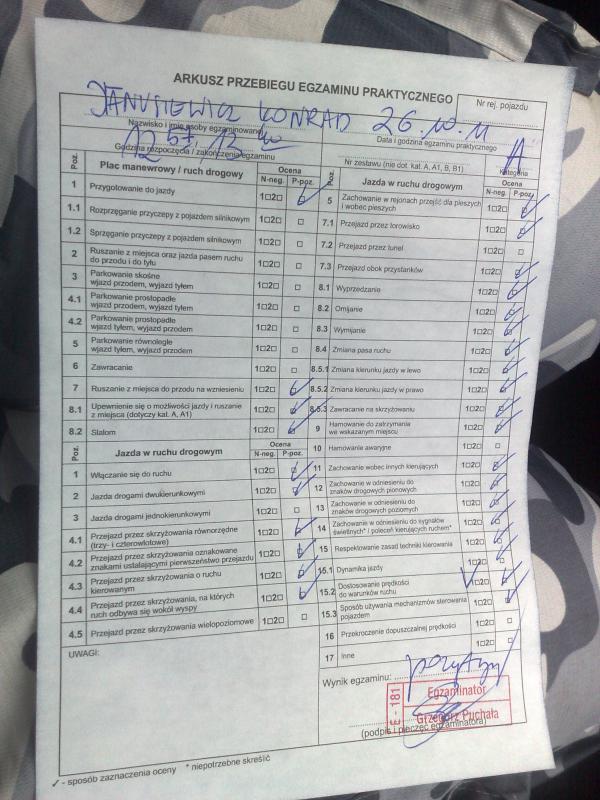 ARKUSZ PRZEBIEGU EGZAMINU PRAKTYCZNEGO
Nr rej. pojazdu
JANUSIEWICZ KONRAD 26.10.11
Nazwisko i imię osoby egzaminowanej
Data i godzina egzaminu praktycznego
12 57 / 13 40
A
Godzina rozpoczęcia / zakończenia egzaminu
Nr zestawu (nie dot. kat. A, A1, B, B1)
Kategoria
Poz. Plac manewrowy / ruch drogowy Ocena N-neg. P-poz.
1 Przygotowanie do jazdy 1□2□
1.1 Rozprzęganie przyczepy z pojazdem silnikowym 1□2□ □
1.2 Sprzęganie przyczepy z pojazdem silnikowym 1□2□ □
2 Ruszanie z miejsca oraz jazda pasem ruchu
do przodu i do tyłu 1□2□ □
3 Parkowanie skośne
wjazd przodem, wyjazd tyłem 1□2□ □
4.1 Parkowanie prostopadłe
wjazd przodem, wyjazd tyłem 1□2□ □
4.2 Parkowanie prostopadłe
wjazd tyłem, wyjazd przodem 1□2□ □
5 Parkowanie równoległe
wjazd tyłem, wyjazd przodem 1□2□ □
6 Zawracanie 1□2□ □
7 Ruszanie z miejsca do przodu na wzniesieniu 1□2□
8.1 Upewnienie się o możliwości jazdy i ruszanie
z miejsca (dotyczy kat. A, A1) 1□2□
8.2 Slalom 1□2□
Poz. Jazda w ruchu drogowym Ocena N-neg. P-poz.
1 Włączanie się do ruchu 1□2□
2 Jazda drogami dwukierunkowymi 1□2□
3 Jazda drogami jednokierunkowymi 1□2□ □
4.1 Przejazd przez skrzyżowania równorzędne
(trzy- i czterowlotowe) 1□2□
4.2 Przejazd przez skrzyżowania oznakowane
znakami ustalającymi pierwszeństwo przejazdu 1□2□
4.3 Przejazd przez skrzyżowania o ruchu
kierowanym 1□2□
4.4 Przejazd przez skrzyżowania, na których
ruch odbywa się wokół wyspy 1□2□
4.5 Przejazd przez skrzyżowania wielopoziomowe 1□2□ □
UWAGI:
Poz. Jazda w ruchu drogowym Ocena N-neg. P-poz.
5 Zachowanie w rejonach przejść dla pieszych
i wobec pieszych 1□2□
7.1 Przejazd przez torowisko 1□2□
7.2 Przejazd przez tunel 1□2□ □
7.3 Przejazd obok przystanków 1□2□
8.1 Wyprzedzanie 1□2□
8.2 Omijanie 1□2□
8.3 Wymijanie 1□2□
8.4 Zmiana pasa ruchu 1□2□
8.5.1 Zmiana kierunku jazdy w lewo 1□2□
8.5.2 Zmiana kierunku jazdy w prawo 1□2□
8.5.3 Zawracanie na skrzyżowaniu 1□2□
9 Hamowanie do zatrzymania
we wskazanym miejscu 1□2□
10 Hamowanie awaryjne 1□2□ □
11 Zachowanie wobec innych kierujących 1□2□
12 Zachowanie w odniesieniu do
znaków drogowych pionowych 1□2□
13 Zachowanie w odniesieniu do
znaków drogowych poziomych 1□2□
14 Zachowanie w odniesieniu do sygnałów
świetlnych* / poleceń kierujących ruchem* 1□2□
15 Respektowanie zasad techniki kierowania 1□2□
15.1 Dynamika jazdy 1□2□
15.2 Dostosowanie prędkości
do warunków ruchu 1□2□
15.3 Sposób używania mechanizmów sterowania
pojazdem 1□2□
16 Przekroczenie dopuszczalnej prędkości 1□2□ □
17 Inne 1□2□ □
Wynik egzaminu: pozytyw
E - 181
Egzaminator
Grzegorz Puchała
(podpis i pieczęć egzaminatora)
✓ - sposób zaznaczenia oceny * niepotrzebne skreślić